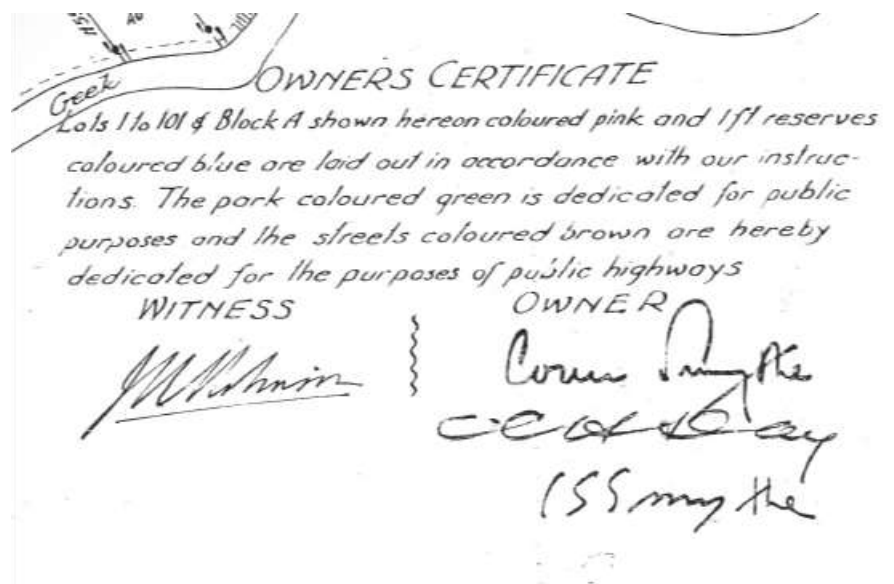 Creek
OWNERS CERTIFICATE
Lots 1 to 101 & Block A shown hereon coloured pink and 1 ft reserves
coloured blue are laid out in accordance with our instruc-
tions. The park coloured green is dedicated for public
purposes and the streets coloured brown are hereby
dedicated for the purposes of public highways
WITNESS OWNER
Smythe
Smythe